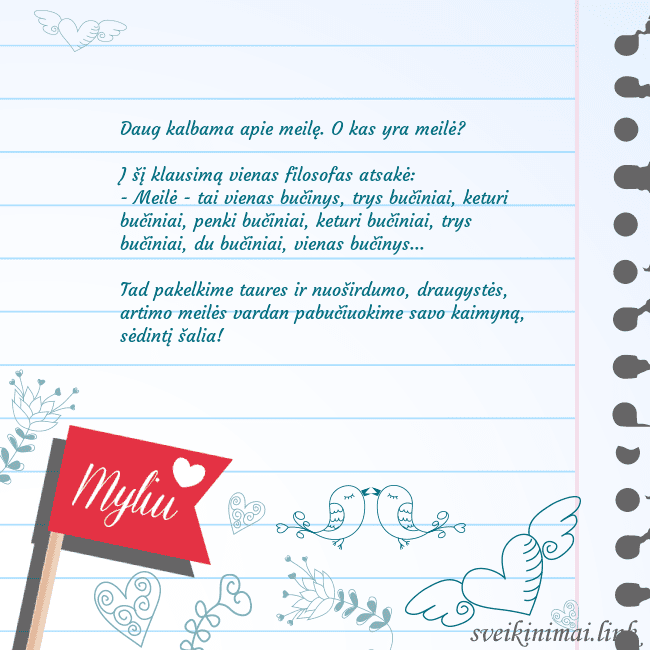 Daug kalbama apie meilę. O kas yra meilė?
Į šį klausimą vienas filosofas atsakė:
- Meilė - tai vienas bučinys, trys bučiniai, keturi
bučiniai, penki bučiniai, keturi bučiniai, trys
bučiniai, du bučiniai, vienas bučinys...
Tad pakelkime taures ir nuoširdumo, draugystės,
artimo meilės vardan pabučiuokime savo kaimyną,
sėdintį šalia!
Myliu
sveikinimai.link